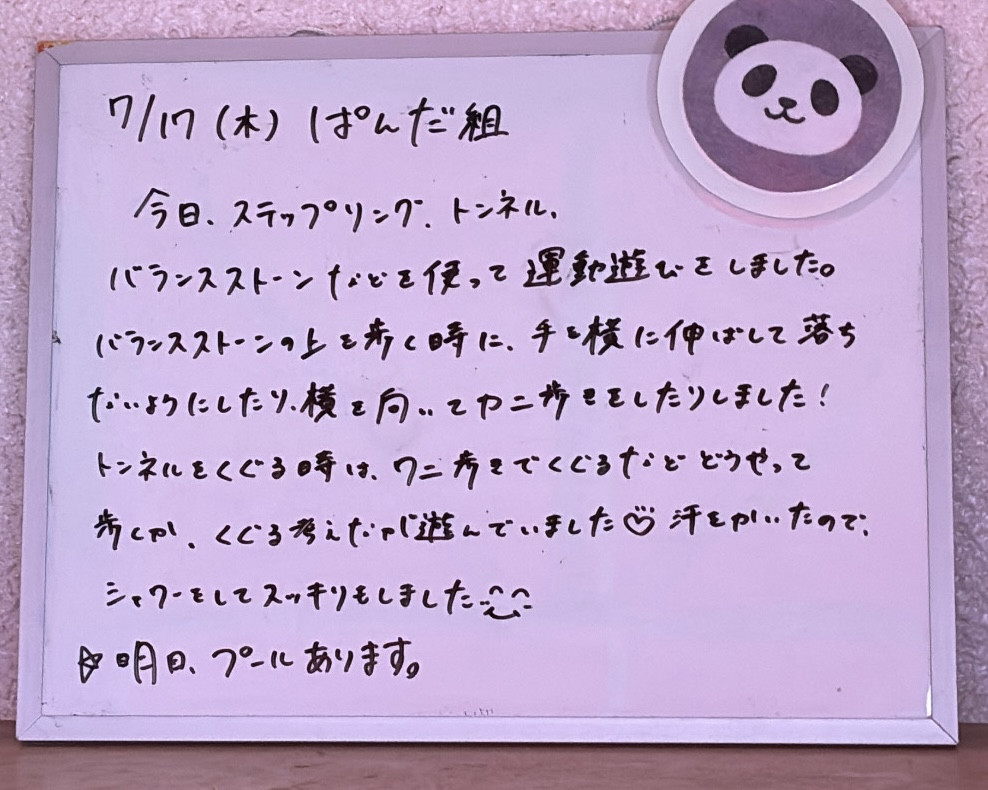 7/17(木) ぱんだ組
今日、ステップリング、トンネル、
バランスストーンなどを使って運動遊びをしました。
バランスストーンの上を歩く時に、手を横に伸ばして落ち
ないようにしたり、横を向いてカニ歩きをしたりしました!
トンネルをくぐる時は、ワニ歩きでくぐるなどどうやって
歩くか、くぐる考えなが遊んでいました♡ 汗をかいたので、
シャワーをしてスッキリもしました^‿^
☆明日、プールあります。